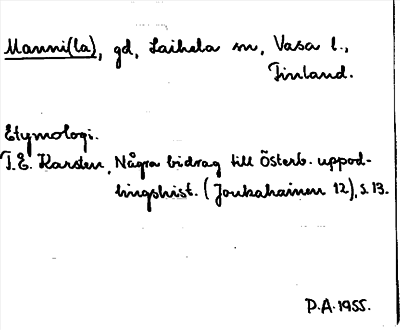 Manni(la), gd, Laihela sn, Vasa l.,
Finland.
Etymologi.
T.E. Karsten, Några bidrag till Österb. uppod-
lingshist. (Joukahainen 12), s. 13.
P.A. 1955.